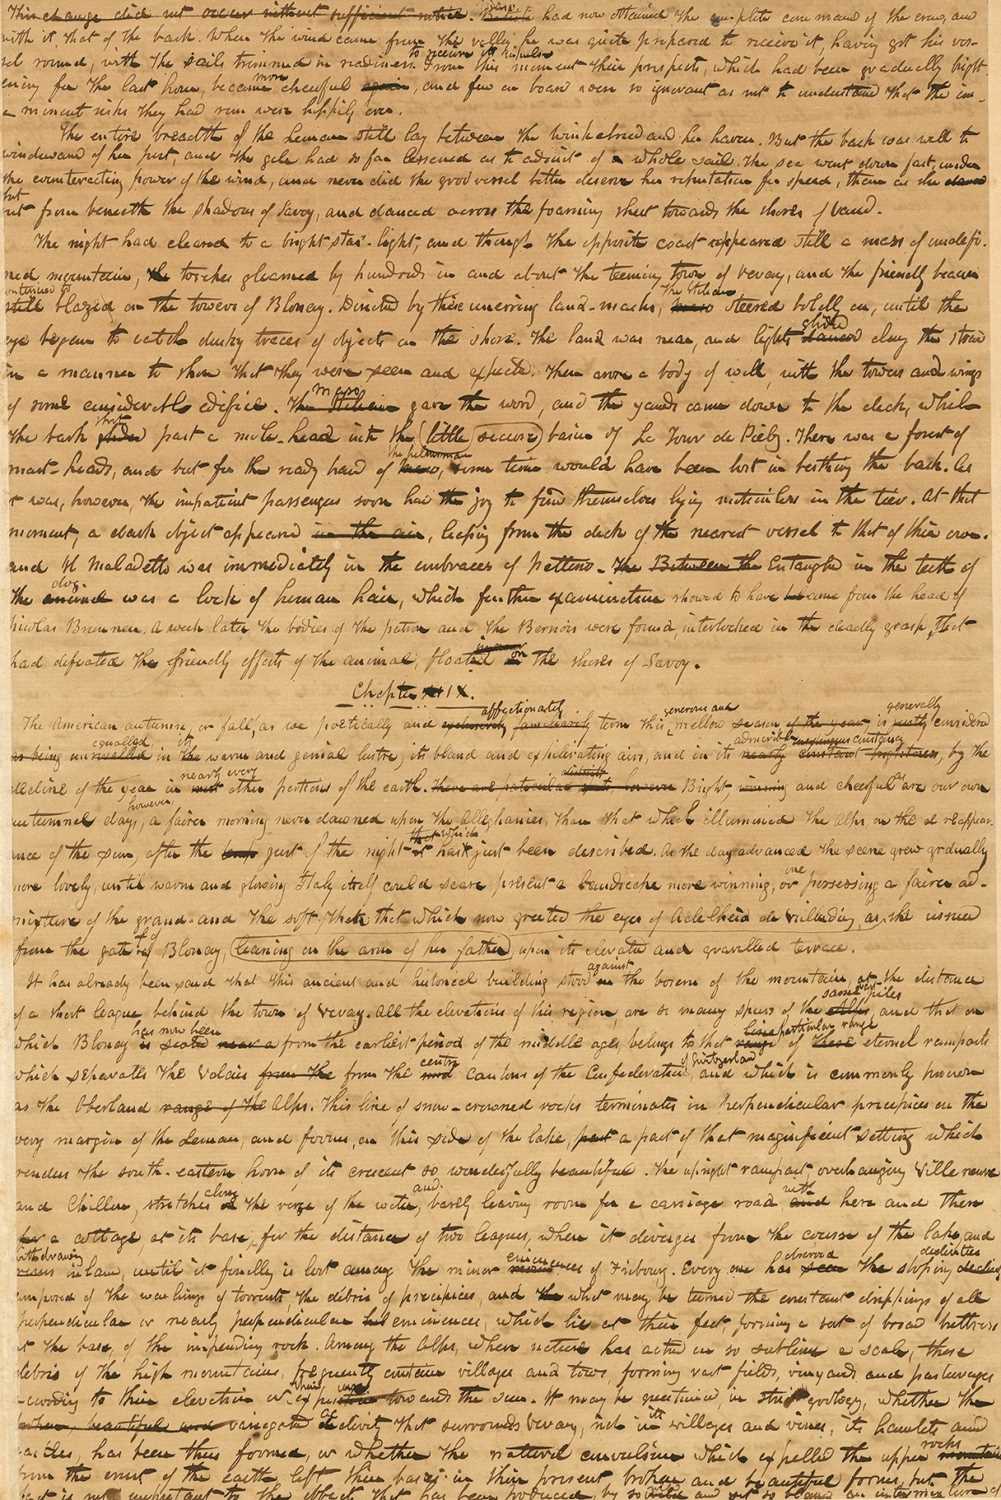 This change did not occur without sufficient notice. had now obtained the complete command of the crew, and
with it that of the bark. When the wind came from the valley, he was quite prepared to receive it, having got his ves-
sel round, with the sails trimmed in readiness to receive its impulse. From this moment their prospects, which had been gradually bright-
ening for the last hour, became more cheerful again, and few on board were so ignorant as not to understand that the im-
minent risks they had run were happily over.
The entire breadth of the Leman still lay between the Winkelried and her haven. But the bark was well to
windward of her port, and the gale had so far lessened as to admit of a whole sail. The sea went down fast, under
the counteracting power of the wind, and never did the good vessel better deserve her reputation for speed, than as she
out from beneath the shadows of Savoy, and danced across the foaming sheet towards the shores of Vaud.
The night had cleared to a bright star-light, and though the opposite coast appeared still a mass of undefi-
ned mountain, the torches gleamed by hundreds in and about the teeming town of Vevay, and the friendly beacon
continued to still blazed on the towers of Blonay. Directed by these unerring land-marks, the Italian Maso steered boldly on, until the
eye began to catch dusky traces of objects on the shore. The land was near, and lights glided danced along the strand
in a manner to show that they were seen and expected. Then arose a body of wall, with the towers and wings
of some considerable edifice. The Maso Italian gave the word, and the yards came down to the deck, while
the bark glided past a mole-head into the little secure basin of La Tour de Peilz. There was a forest of
mast-heads, and but for the ready hand of the helmsman Maso, some time would have been lost in berthing the bark. As
it was, however, the impatient passengers soon had the joy to find themselves lying motionless in the tier. At that
moment, a dark object appeared in the air, leaping from the deck of the nearest vessel to that of their own.
and Il Maledetto was immediately in the embraces of Nettuno. The Between the Entangled in the teeth of
the dog animal was a lock of human hair, which further examination showed to have come from the head of
Nicolas Brennen. A week later the bodies of the patron and the Bernois were found, interlocked in the deadly grasp, that
had defeated the friendly efforts of the animal, floated on the shores of Savoy.
Chapter IX.
The American autumn, or fall, as we poetically and affectionately term this generous and mellow season of the year is generally considered
as being unequalled in the warm and genial lustre, its bland and exhilarating airs, and in its admirable constancy, by the
decline of the year in nearly every other portions of the earth. There are particular Bright and cheerful as are our own
autumnal days, however, a fairer morning never dawned upon the Alleghanies, than that which illumined the Alps on the reappear-
ance of the sun, after the gust of the night that which it has just been described. As the day advanced the scene grew gradually
more lovely, until warm and glowing Italy itself could scarce present a landscape more winning, or one possessing a fairer ad-
mixture of the grand and the soft, than that which now greeted the eyes of Adelheid de Willading, as she issued
from the gate of Blonay, leaning on the arm of her father, upon its elevated and gravelled terrace.
It has already been said that this ancient and historical building stood against in the bosom of the mountain, at the distance
of a short league behind the town of Vevay. All the elevations of this region, are so many spurs of the same vast piles, and that on
which Blonay has now been is seated from the earliest period of the middle ages, belongs to that particular range of these eternal ramparts
which separates the Valais from the from the centre cantons of the Confederation of Switzerland, and which is commonly known
as the Oberland range of the Alps. This line of snow-crowned rocks terminates in perpendicular precipices on the
very margin of the Leman, and forms, on this side of the lake, a part of that magnificent setting which
renders the south-eastern horn of its crescent so wonderfully beautiful. The upright rampart overhanging Villeneuve
and Chillon, stretches along the verge of the water, and barely leaving room for a carriage road, with here and there
a cottage, at its base, for the distance of two leagues, where it diverges from the course of the lake, and
withdrawing inland, until it is finally lost among the minor eminences of Fribourg. Every one has observed the sloping declivities
composed of the washings of torrents, the debris of precipices, and what may be termed the constant drippings of all
perpendicular or nearly perpendicular eminences, which lie at their feet, forming a sort of broad buttress
at the base, of the impending rock. Among the Alps, where nature has acted on so sublime a scale, these
debris of the high mountains, frequently contain villages and towns, forming vast fields, vineyards and pasturages
according to their elevation or exposure towards the sun. It may be questioned, in strict geology, whether the
beautiful and variegated declivity that surrounds Vevay, rich in its villages and vines, its hamlets and
castles, has been thus formed, or whether the natural convulsion which expelled the upper rocks
from the crust of the earth left their bases in their present, broken and beautiful forms, but the